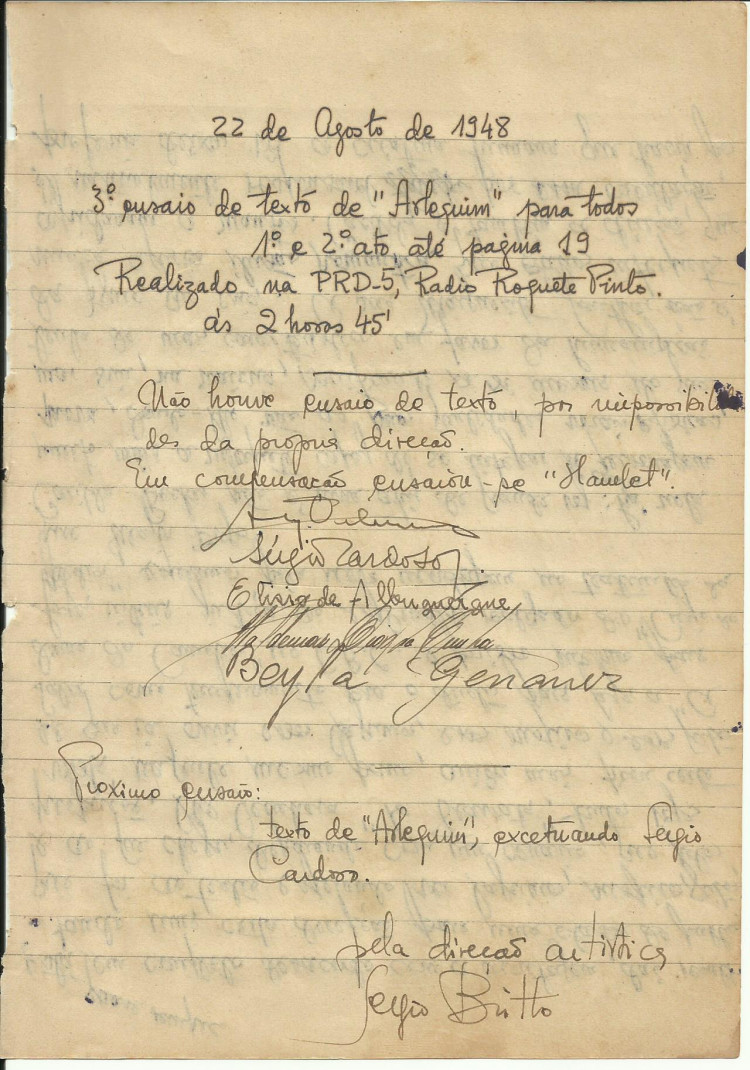 22 de Agosto de 1948
3º ensaio de texto de "Arlequim" para todos
1º e 2º ato, até pagina 19
Realizado na PRD-5, Radio Roquete Pinto.
ás 2 horas 45'
Não houve ensaio de texto, por impossibilida
des da propria direcção.
Em compensação ensaiou-se "Hamlet".
Sérgio Cardoso
Elisio de Albuquerque
Beyla Genauer
Proximo ensaio:
texto de "Arlequim", excetuando Sergio
Cardoso.
pela direcção artistica
Sergio Britto